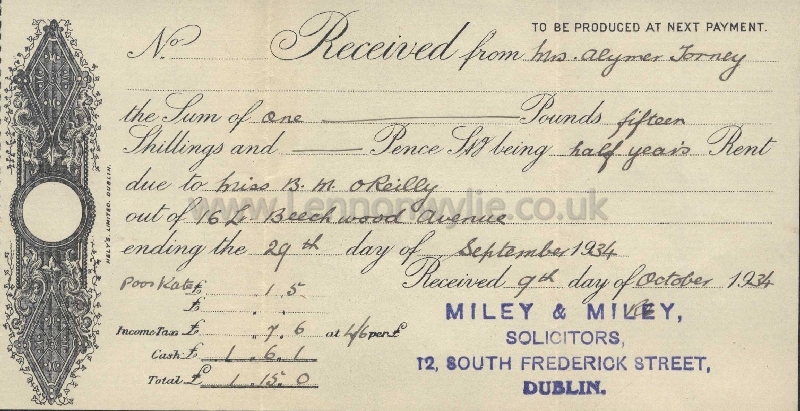 TO BE PRODUCED AT NEXT PAYMENT.
No. Received from Mrs. Alymer Torney
the Sum of one Pounds fifteen
Shillings and Pence Stg being half year's Rent
due to Miss B. M. O'Reilly
out of 16 Beechwood Avenue
ending the 29th day of September 1934
Received 9th day of October 1934
Poor Rate £ 1 5
£
Income Tax £ 7. 6 at 4/6 per £
Cash £ 1. 6. 1
Total £ 1. 15. 0
MILEY & MILEY,
SOLICITORS,
12, SOUTH FREDERICK STREET,
DUBLIN.
HELY'S LIMITED, DUBLIN.
www.Lennonwylie.co.uk